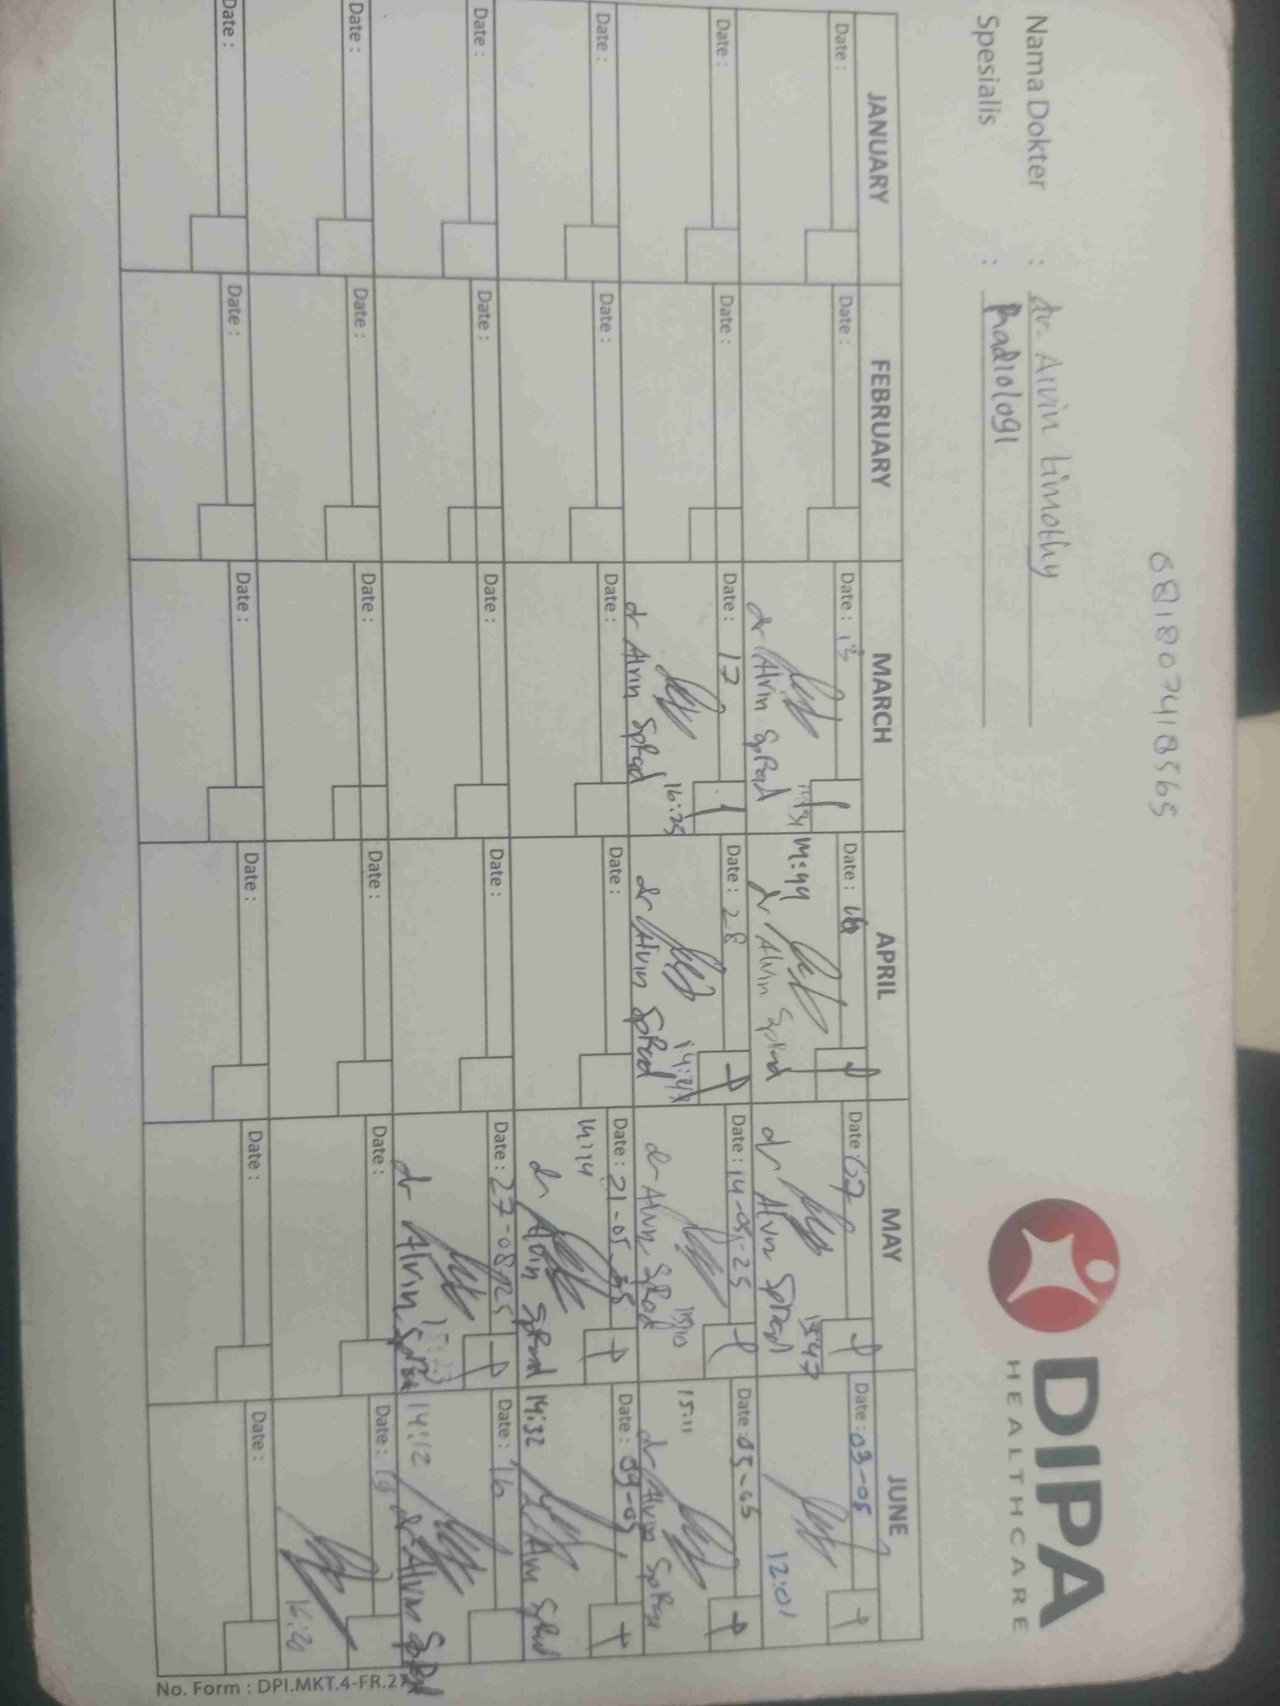 081807418565
DIPA
HEALTHCARE
Nama Dokter : dr. Alvin timothy
Spesialis : Radiologi
JANUARY FEBRUARY MARCH APRIL MAY JUNE
Date : Date : Date : 13 Date : Date : 07 Date : 03-05
14:44
dr Alvin SpRad dr Alvin SpRad dr Alvin SpRad
15:47 12:01
Date : Date : Date : 17 Date : 28 Date : 14-05-25 Date : 05-
15:11
dr Alvin SpRad dr Alvin SpRad dr Alvin SpRad dr Alvin SpRad
16:25
Date : Date : Date : Date : Date : 21-05 Date :
14:14 14:32
dr Alvin SpRad dr Alvin SpRad
Date : Date : Date : Date : Date : 27- Date : 16
14:12
dr Alvin SpRad dr Alvin SpRad
Date : Date : Date : Date : Date : Date : 19
16:20
Date : Date : Date : Date : Date : Date :
No. Form : DPI.MKT.4-FR.2